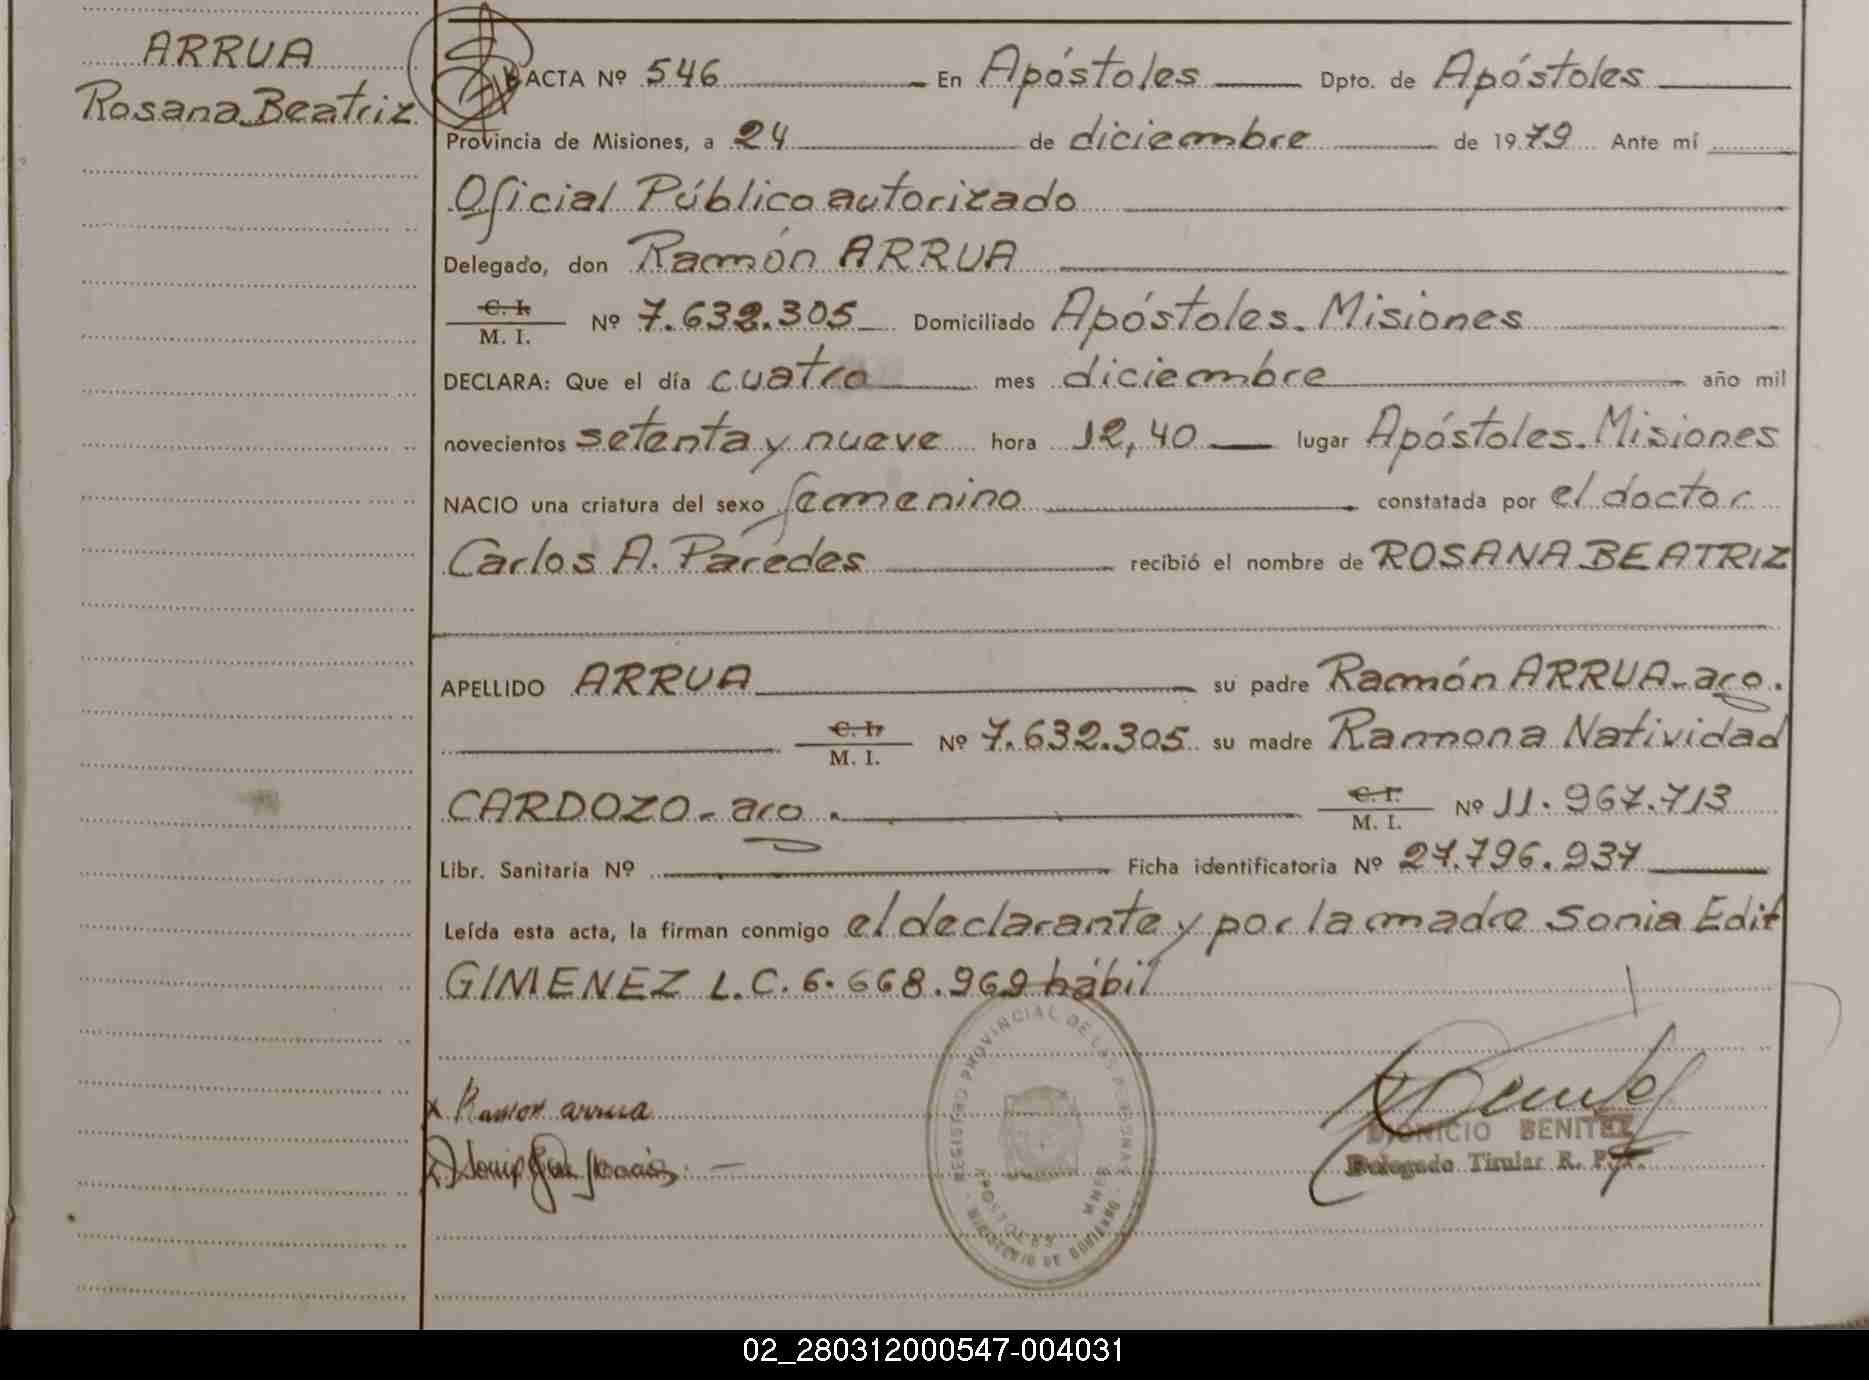 ARRUA
Rosana Beatriz
ACTA Nº 546 En Apóstoles Dpto. de Apóstoles
Provincia de Misiones, a 24 de diciembre de 1979 Ante mí
Oficial Público autorizado
Delegado, don Ramón ARRUA
C. I.
M. I. Nº 7.632.305 Domiciliado Apóstoles. Misiones
DECLARA: Que el día cuatro mes diciembre año mil
novecientos setenta y nueve hora 12,40 lugar Apóstoles. Misiones
NACIO una criatura del sexo femenino constatada por el doctor
Carlos A. Paredes recibió el nombre de ROSANA BEATRIZ
APELLIDO ARRUA su padre Ramón ARRUA - aro.
C. I.
M. I. Nº 7.632.305 su madre Ramona Natividad
CARDOZO - aro. C. I.
M. I. Nº 11.967.713
Libr. Sanitaria Nº Ficha identificatoria Nº 27.796.937
Leída esta acta, la firman conmigo el declarante y por la madre Sonia Edit
GIMENEZ L.C. 6.668.969 hábil
REGISTRO PROVINCIAL DE LAS PERSONAS
APOSTOLES MNES
MINISTERIO DE GOBIERNO
x Ramon arrua
DIONICIO BENITEZ
Delegado Titular R. P. P.
02_280312000547-004031